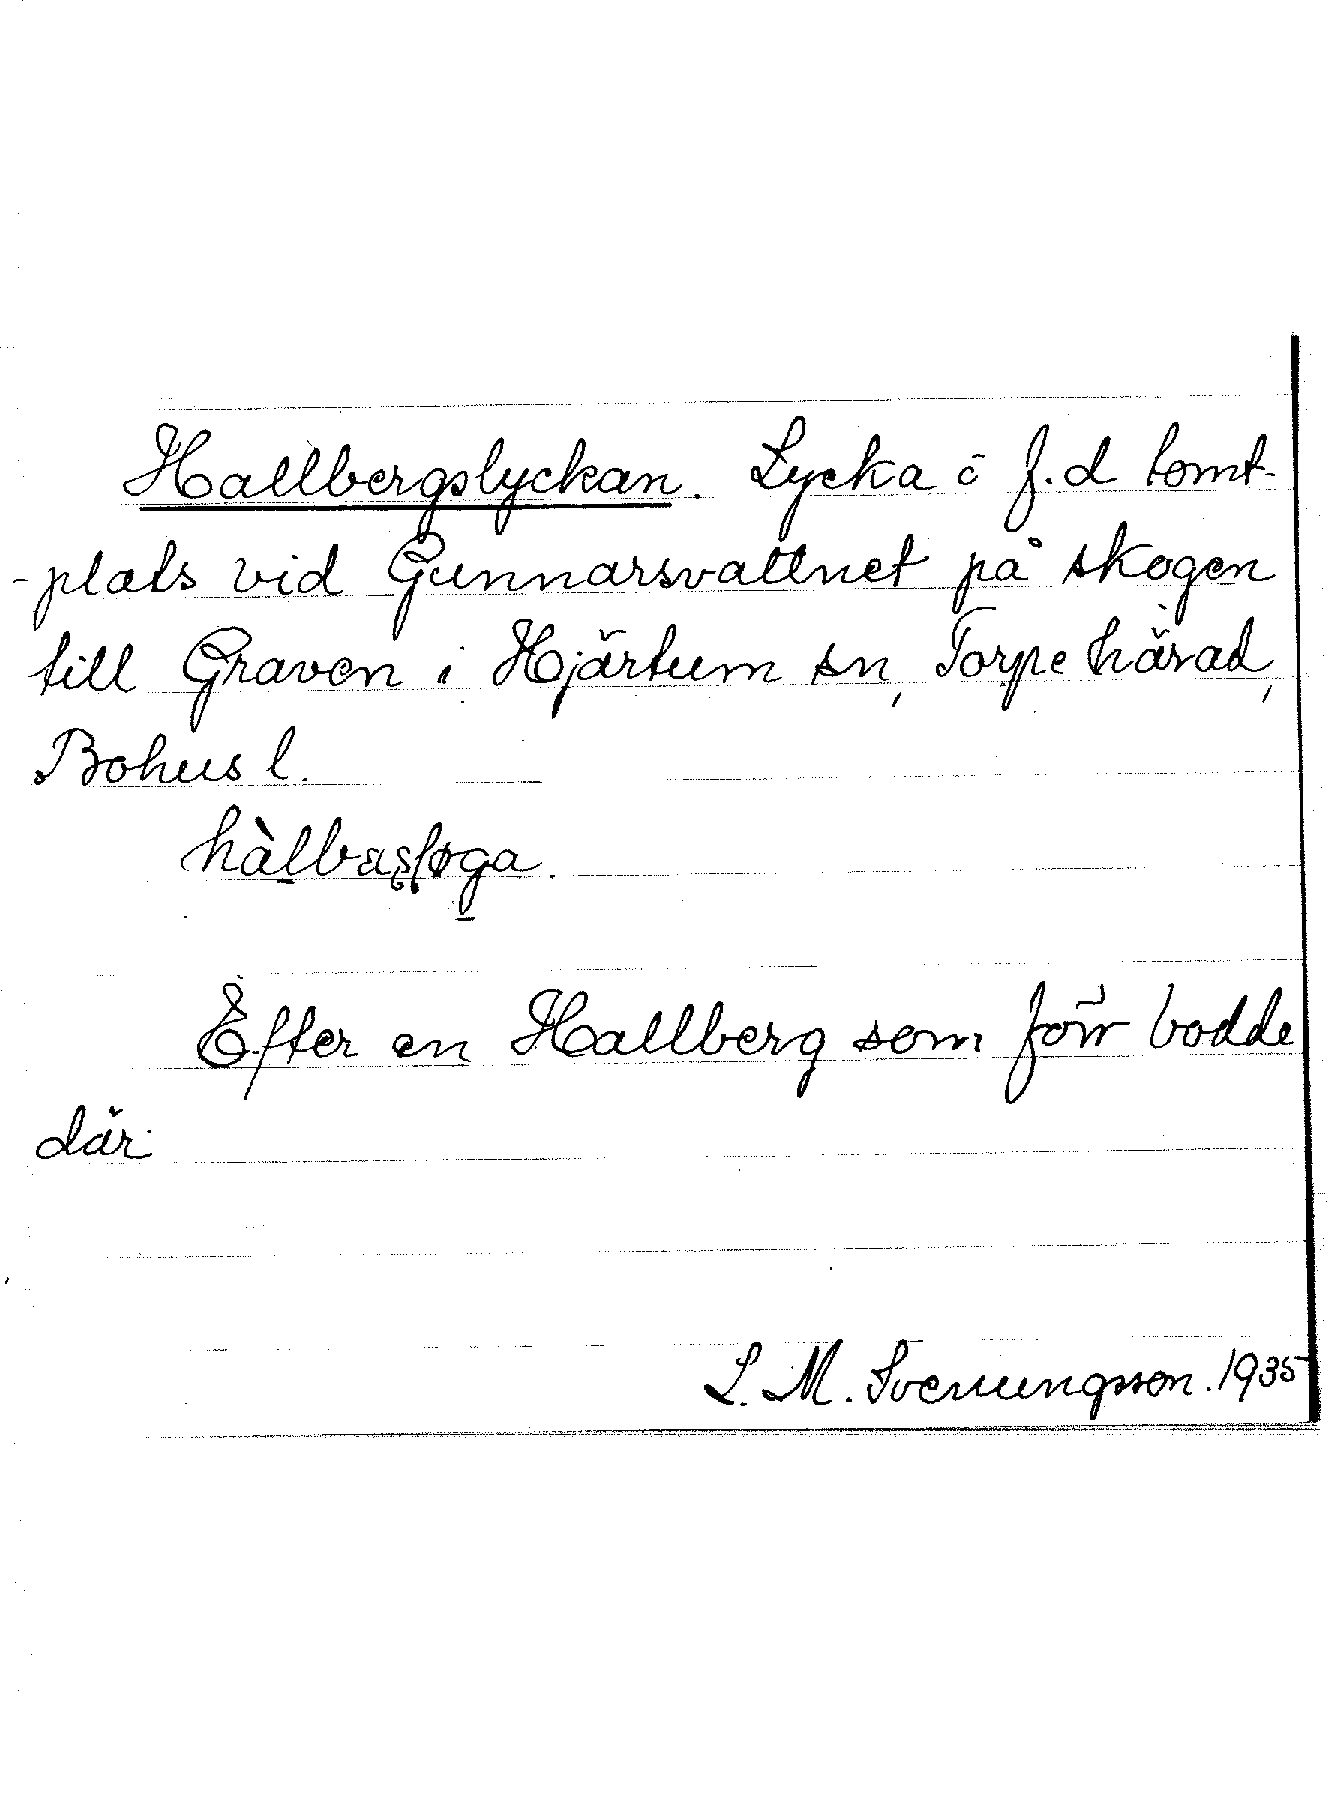 Hallbergslyckan. Lycka o f.d tomt-
-plats vid Gunnarsvattnet på skogen
till Graven i Hjärtum sn, Torpe härad,
Bohus l.
Efter en Hallberg som förr bodde
där
L. M. Svenungsson. 1935